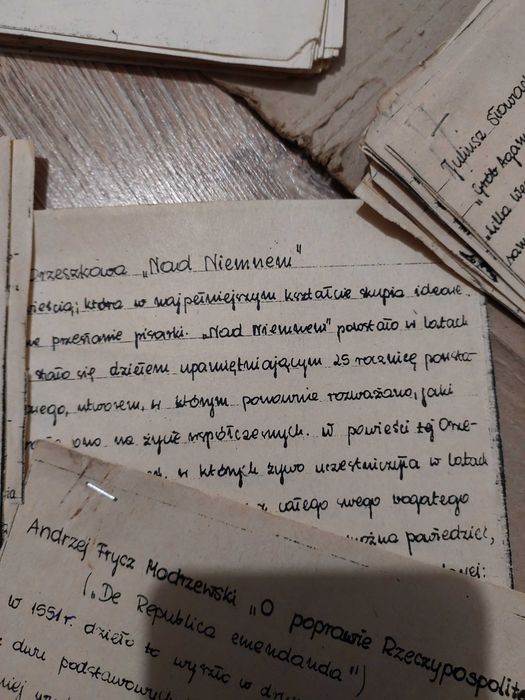 Orzeszkowa „Nad Niemnem"
która w najpełniejszym kształcie skupia ideowe
przesłanie pisarki. „Nad Niemnem" powstało w latach
stało się dziełem upamiętniającym 25 rocznicę powsta
utworem, w którym ponownie rozważano, jaki
ono na życie współczesnych. W powieści tej Orze-
w których żywo uczestniczyła w latach
całego swego bogatego
można powiedzieć,
Juliusz Słowac
„Grób Agam
kilka
sam
Andrzej Frycz Modrzewski „O poprawie Rzeczypospolite
(„De Republica emendanda")
w 1551r. dzieło to wyszło w
dwu podstawowych